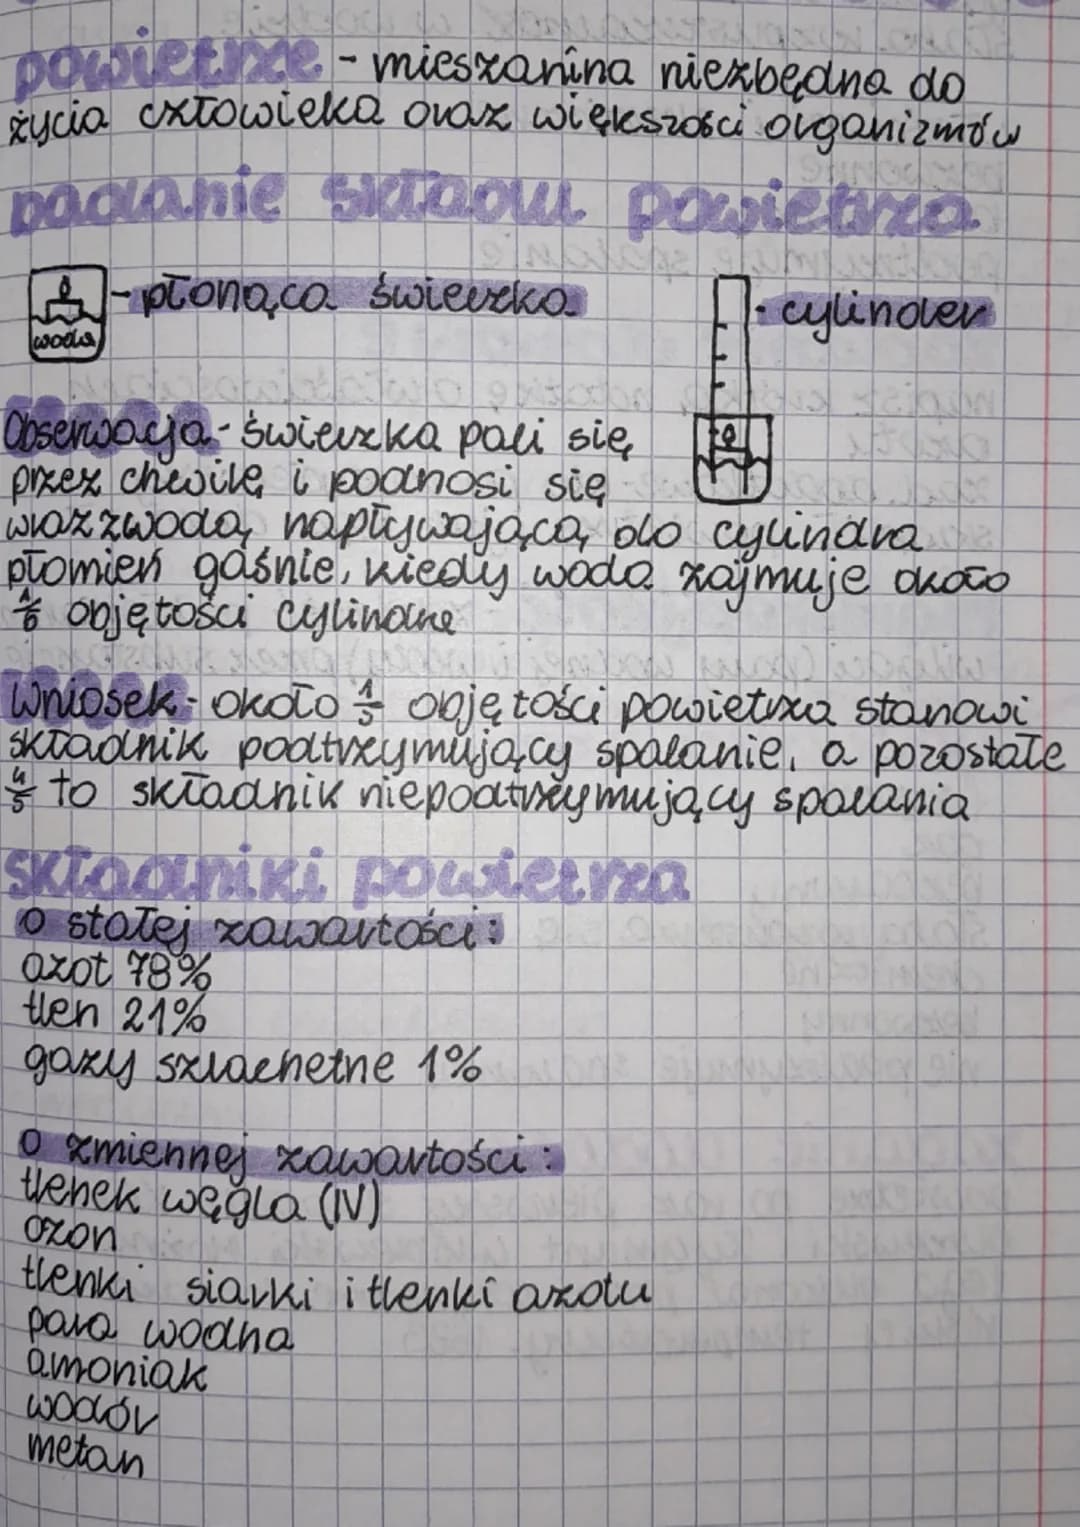 powietrze - mieszanina niezbędna do
życia człowieka oraz większości organizmów
badanie składu powietrza
- płonąca świeczka
woda
- cylinder
Obserwacja - świeczka pali się
przez chwilę i podnosi się
wraz z wodą napływającą do cylindra
płomień gaśnie, kiedy woda zajmuje około
objętości cylindra
Wniosek - około 1/5 objętości powietrza stanowi
składnik podtrzymujący spalanie, a pozostałe
4/5 to składnik niepodtrzymujący spalania
składniki powietrza
o stałej zawartości:
azot 78%
tlen 21%
gazy szlachetne 1%
o zmiennej zawartości:
tlenek węgla (IV)
ozon
tlenki siarki i tlenki azotu
para wodna
amoniak
wodór
metan